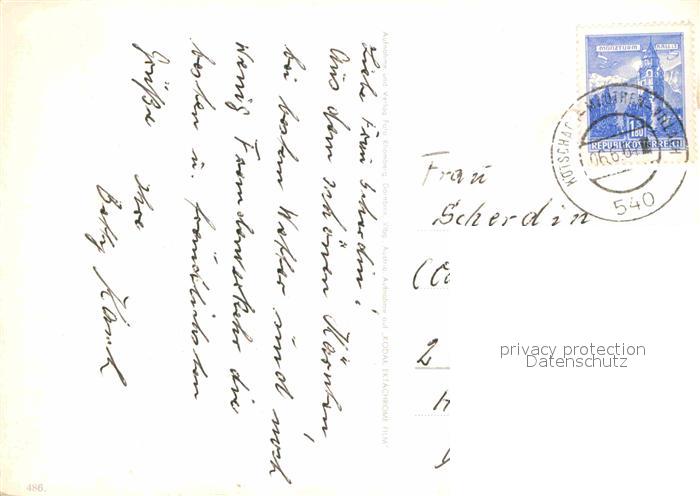 Liebe Frau Scherdin!
Aus dem schönen Kärnten,
bei bestem Wetter und noch
wenig Fremdenverkehr die
besten u. freundlichsten
Grüße
Ihre
Aufnahme und Verlag Foto Dornbirn, Austria Aufnahme auf „KODAK EKTACHROME FILM"
486.
MÜNZTURM HALL i. T.
1.80
REPUBLIK ÖSTERREICH
KÖTSCHACH-MAUTHEN
06.6.6
540
Frau
Scherdin
2
privacy protection
Datenschutz